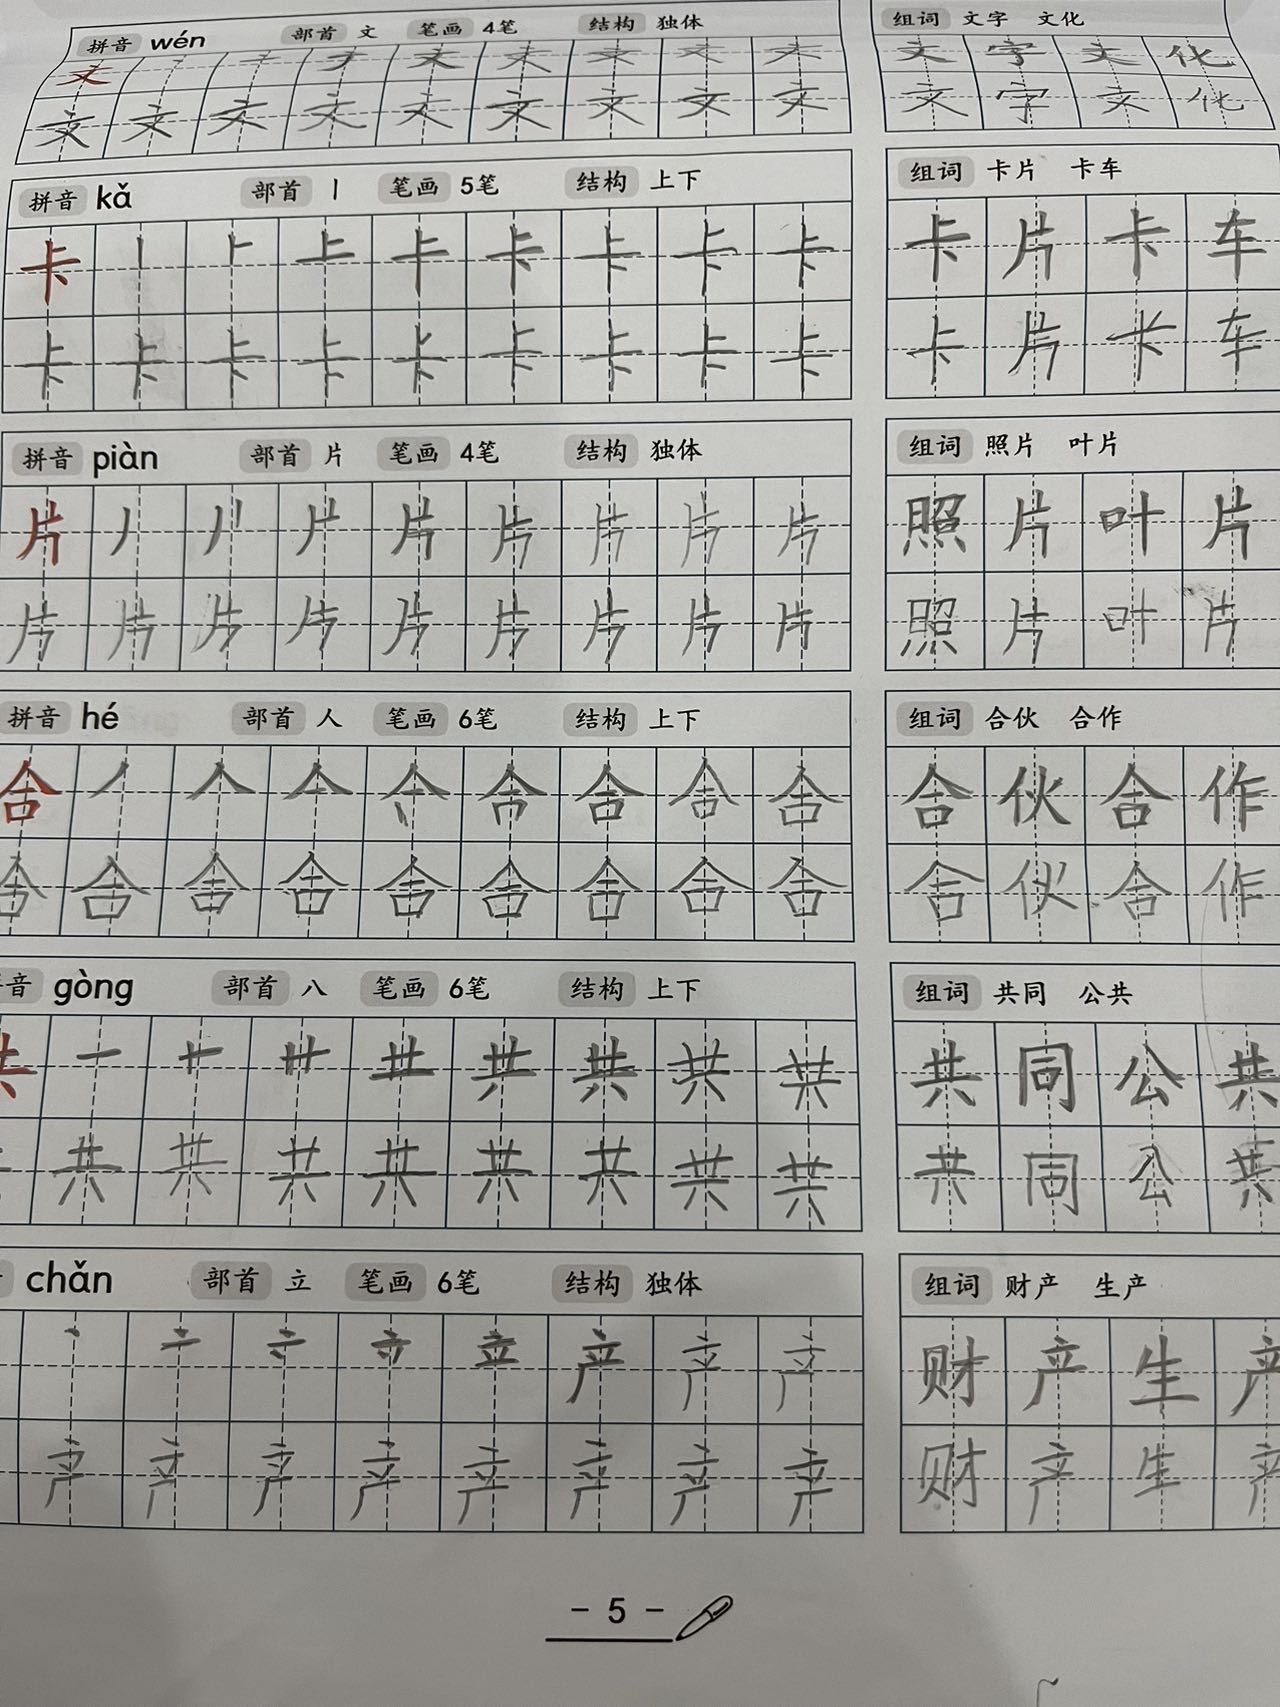 拼音 wén 部首 文 笔画 4笔 结构 独体 组词 文字 文化
文 文 文 文 文 文 文 字 文 化
文 文 文 文 文 文 文 文 文 文 字 文 化
拼音 kǎ 部首 丨 笔画 5笔 结构 上下 组词 卡片 卡车
卡 丨 卜 上 卡 卡 卡 卡 卡 片 卡 车
卡 卡 卡 卡 卡 卡 卡 卡 卡 卡 片 卡 车
拼音 piàn 部首 片 笔画 4笔 结构 独体 组词 照片 叶片
片 丿 片 片 片 片 片 照 片 叶 片
片 片 片 片 片 片 片 片 片 照 片 叶 片
拼音 hé 部首 人 笔画 6笔 结构 上下 组词 合伙 合作
合 丿 人 亼 合 合 合 合 伙 合 作
合 合 合 合 合 合 合 合 合 合 伙 合 作
音 gòng 部首 八 笔画 6笔 结构 上下 组词 共同 公共
共 一 十 卄 龷 共 共 共 共 同 公 共
共 共 共 共 共 共 共 共 共 同 公 共
chǎn 部首 立 笔画 6笔 结构 独体 组词 财产 生产
丶 亠 立 产 产 产 财 产 生 产
产 产 产 产 产 产 产 产 财 产 生 产
- 5 -